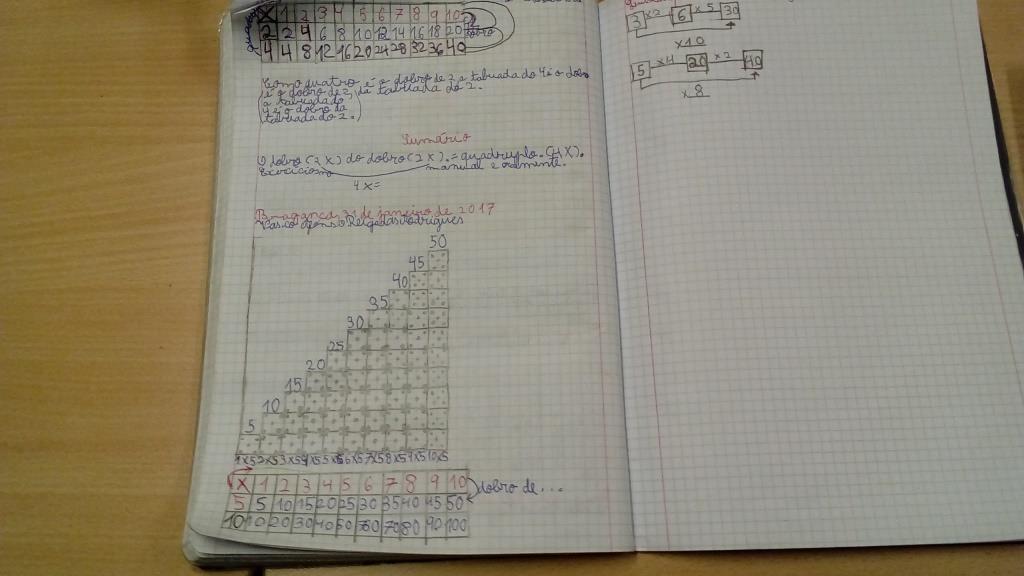 X 1 2 3 4 5 6 7 8 9 10
2 2 4 6 8 10 12 14 16 18 20 dobro
4 4 8 12 16 20 24 28 32 36 40
Como quatro é o dobro de 2 a tabuada do 4 é o dobro
da tabuada do 2.
(4 é o dobro de 2,
a tabuada do
4 é o dobro da
tabuada do 2.)
Sumário
O dobro (2 X) do dobro (2 X). = quadruplo. (4 X).
Exercícios manual e oralmente.
4 X =
Bragança, 31 de janeiro de 2017
Vasco Afonso Rodrigues
50
45
40
35
30
25
20
15
10
5
1x5 2x5 3x5 4x5 5x5 6x5 7x5 8x5 9x5 10x5
X 1 2 3 4 5 6 7 8 9 10
5 5 10 15 20 25 30 35 40 45 50 dobro de...
10 10 20 30 40 50 60 70 80 90 100
3 x2 6 x5 30
x10
5 x4 20 x2 40
x 8